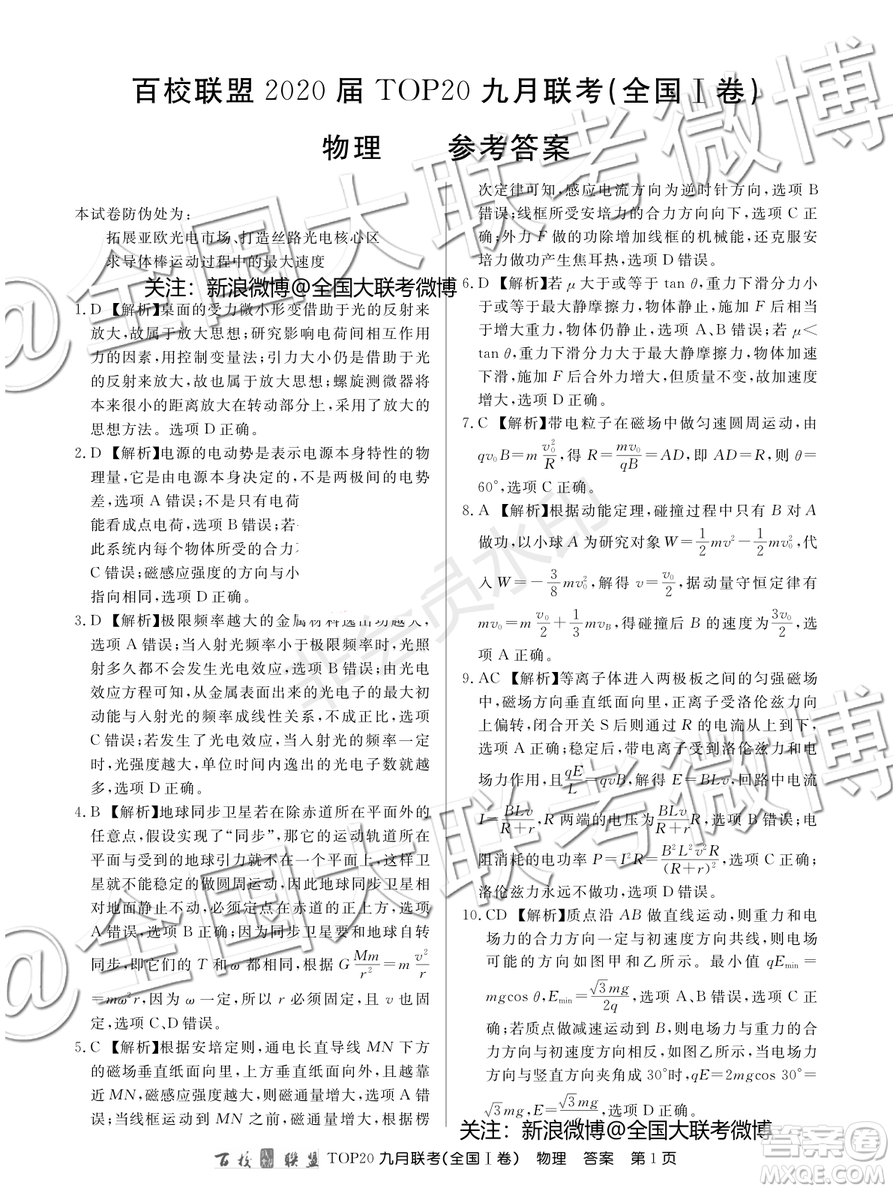 百校联盟 2020 届 TOP20 九月联考(全国Ⅰ卷)
物理 参考答案
本试卷防伪处为:
拓展亚欧光电市场、打造丝路光电核心区
求导体棒运动过程中的最大速度
关注：新浪微博@全国大联考微博
1. D 【解析】桌面的受力微小形变借助于光的反射来
放大,故属于放大思想;研究影响电荷间相互作用
力的因素,用控制变量法;引力大小仍是借助于光
的反射来放大,故属于放大思想;螺旋测微器将
本来很小的距离放大在转动部分上,采用了放大的
思想方法。选项 D 正确。
2. D 【解析】电源的电动势是表示电源本身特性的物
理量,它是由电源本身决定的,不是两极间的电势
差,选项 A 错误;不是只有电荷
能看成点电荷,选项 B 错误;若
此系统内每个物体所受的合力
C 错误;磁感应强度的方向与小
指向相同,选项 D 正确。
3. D 【解析】极限频率越大的金属材料逸出功越大,
选项 A 错误;当入射光频率小于极限频率时,光照
射多久都不会发生光电效应,选项 B 错误;由光电
效应方程可知,从金属表面出来的光电子的最大初
动能与入射光的频率成线性关系,不成正比,选项
C 错误;若发生了光电效应,当入射光的频率一定
时,光强度越大,单位时间内逸出的光电子数就越
多,选项 D 正确。
4. B 【解析】地球同步卫星若在除赤道所在平面外的
任意点,假设实现了“同步”,那它的运动轨道所在
平面与受到的地球引力就不在一个平面上,这样卫
星不可能稳定的做圆周运动,因此地球同步卫星相
对地面静止不动,必须定点在赤道的正上方,选项
A 错误,选项 B 正确;因为同步卫星要和地球自转
同步,即它们的 T 和 ω 都相同,根据 G Mm/r² = m v²/r
=mω²r,因为 ω 一定,所以 r 必须固定,且线速度也固
定,选项 C、D 错误。
5. C 【解析】根据安培定则,通电长直导线 MN 下方
的磁场方向垂直纸面向里,上方垂直纸面向外,且越靠
近 MN,磁感应强度越大,则磁通量增大,选项 A 错
误;当线框运动到 MN 之前,磁通量增大,根据楞
次定律可知,感应电流方向为逆时针方向,选项 B
错误;线框所受安培力的合力方向向下,选项 C 正
确;外力 F 做的功除增加线框的机械能,还克服安
培力做功产生焦耳热,选项 D 错误。
6. D 【解析】若 μ 大于或等于 tan θ,重力下滑分力小
于或等于最大静摩擦力,物体静止,施加 F 后相当
于增大重力,物体仍静止,选项 A、B 错误;若 μ<
tan θ,重力下滑分力大于最大静摩擦力,物体加速
下滑,施加 F 后合外力增大,但质量不变,故加速度
增大,选项 D 正确。
7. C 【解析】带电粒子在磁场中做匀速圆周运动,由
qv₀B=m v₀²/R,得 R=mv₀/qB=AD,即 AD=R,则 θ=
60°,选项 C 正确。
8. A 【解析】根据动能定理,碰撞过程中只有 B 对 A
做功,以小球 A 为研究对象 W=1/2 mv²−1/2 mv₀²,代
入 W=−3/8 mv₀²,解得 v=v₀/2,据动量守恒定律有
mv₀=m v₀/2+1/3 mv_B,得碰撞后 B 的速度为 3v₀/2,选
项 A 正确。
9. AC 【解析】等离子体进入两极板之间的匀强磁场
中,磁场方向垂直纸面向里,正离子受洛伦兹力向
上偏转,闭合开关 S 后则通过 R 的电流从上到下,
选项 A 正确;稳定后,带电离子受到洛伦兹力和电
场力作用,且 qE/L=qvB,解得 E=BLv,回路中电流
I=BLv/(R+r),R 两端的电压为 BLv/(R+r) R,选项 B 错误;电
阻消耗的电功率 P=I²R=B²L²v²R/(R+r)²,选项 C 正确;
洛伦兹力永远不做功,选项 D 错误。
10. CD 【解析】质点沿 AB 做直线运动,则重力和电
场力的合力方向一定与初速度方向共线,则电场
可能的方向如图甲和乙所示。最小值 qE_min=
mgcos θ,E_min=√3mg/2q,选项 A、B 错误,选项 C 正
确;若质点做减速运动,则电场力与重力的合
力方向与初速度方向相反,如图乙所示,若电场
方向与竖直方向夹角成 30°时,qE=2mgcos 30°=
√3mg,E=√3mg/q,选项 D 正确。
关注：新浪微博@全国大联考微博
百校联盟 TOP20 九月联考(全国Ⅰ卷) 物理 答案 第 1 页
@全国大联考微博
@全国大联考微博
非会员水印
答案圈